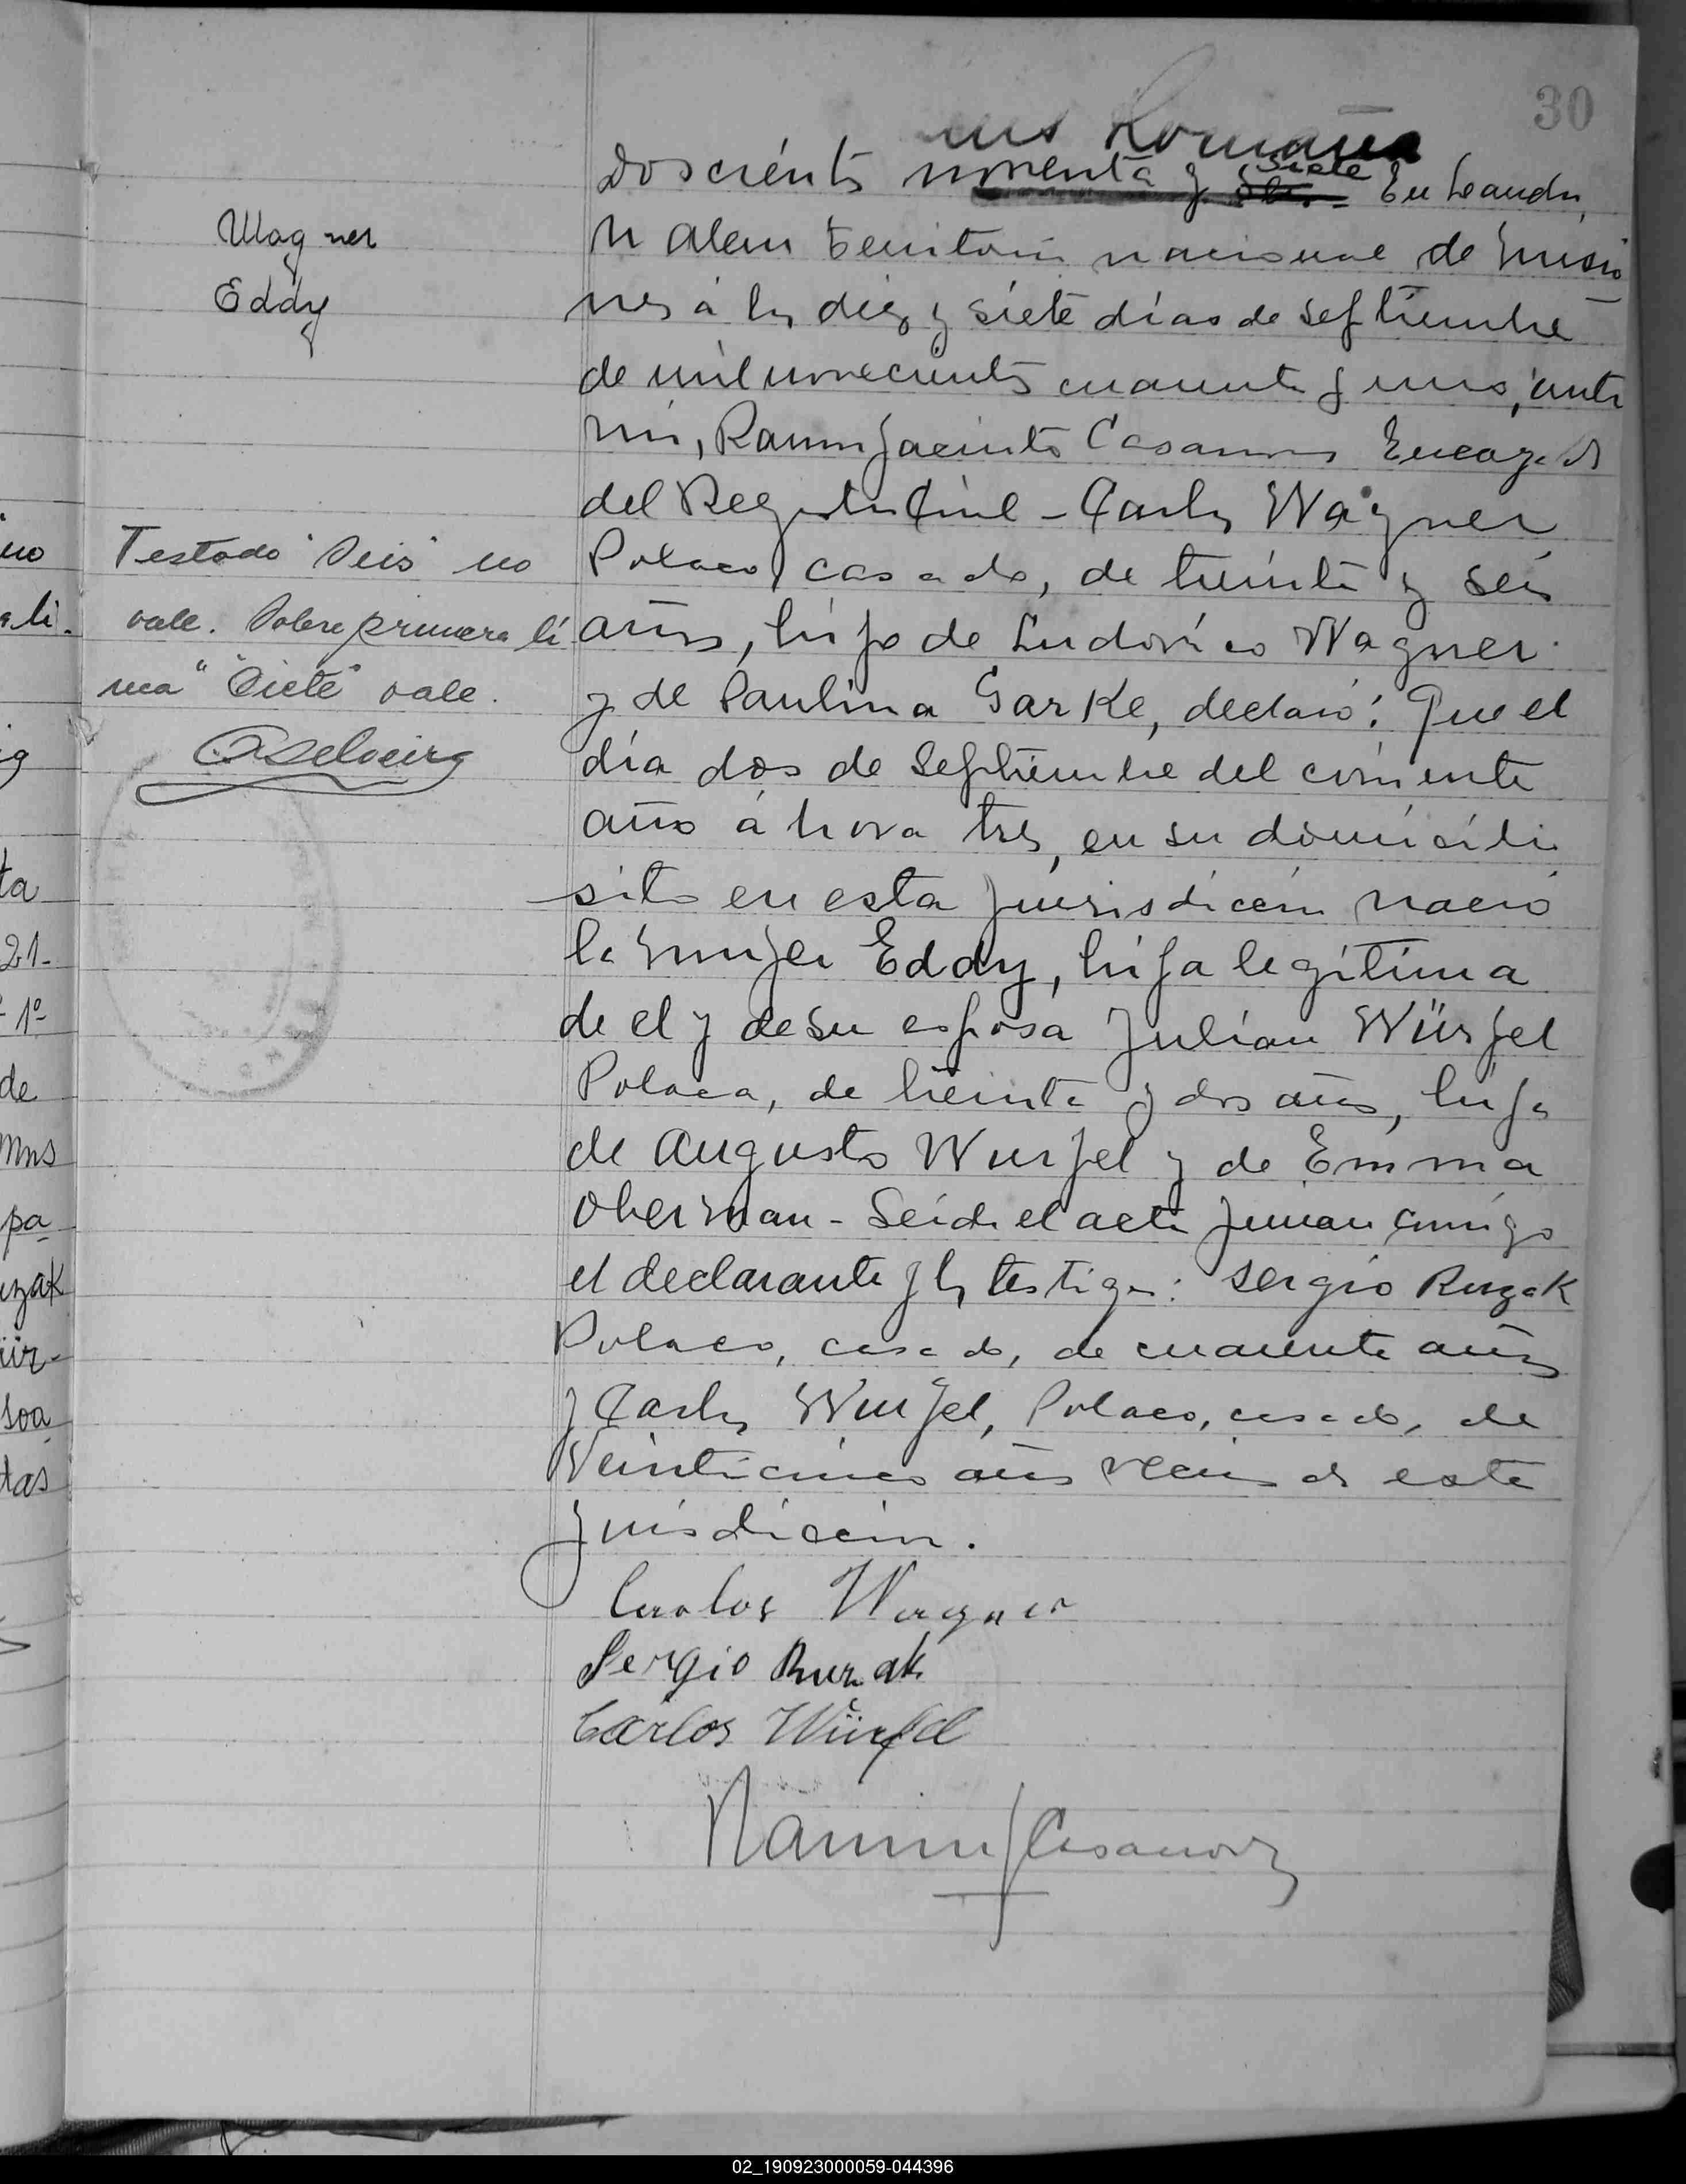 30
Doscients noventa y siete En Leandro
N alem territorio nacional de misio
nes á los diez y siete días de septiembre
de mil novecientos cuarenta y uno, ante
mi, Ramon Jacinto Casanova Encargado
del Registro Civil - Carlos Wagner
Polaco casado, de treinta y seis
años, hijo de Ludovico Wagner
y de Paulina Garke, declaró: Que el
día dos de septiembre del corriente
año á hora tres, en su domicilio
sito en esta jurisdiccion nació
la mujer Eddy, hija legítima
de el y de su esposa Julian Würfel
Polaca, de treinta y dos años, hija
de Augusto Wurfel y de Emma
Oberman - Leida el acta firman conmigo
el declarante y los testigos: Sergio Ruzak
Polaco, casado, de cuarenta años
y Carlos Wurfel, Polaco, casado, de
Veinticinco años vecinos de esta
jurisdiccion.
Carlos Wagner
Sergio Ruzak
Carlos Würfel
Ramon J Casanova
Wagner
Eddy
Testado "Seis" no
vale. Sobre primera lí
nea "Siete" vale.
no
ali.
ig
ta
21-
1º
de
mns
pa
uzak
ür-
soa
das
02_190923000059-044396